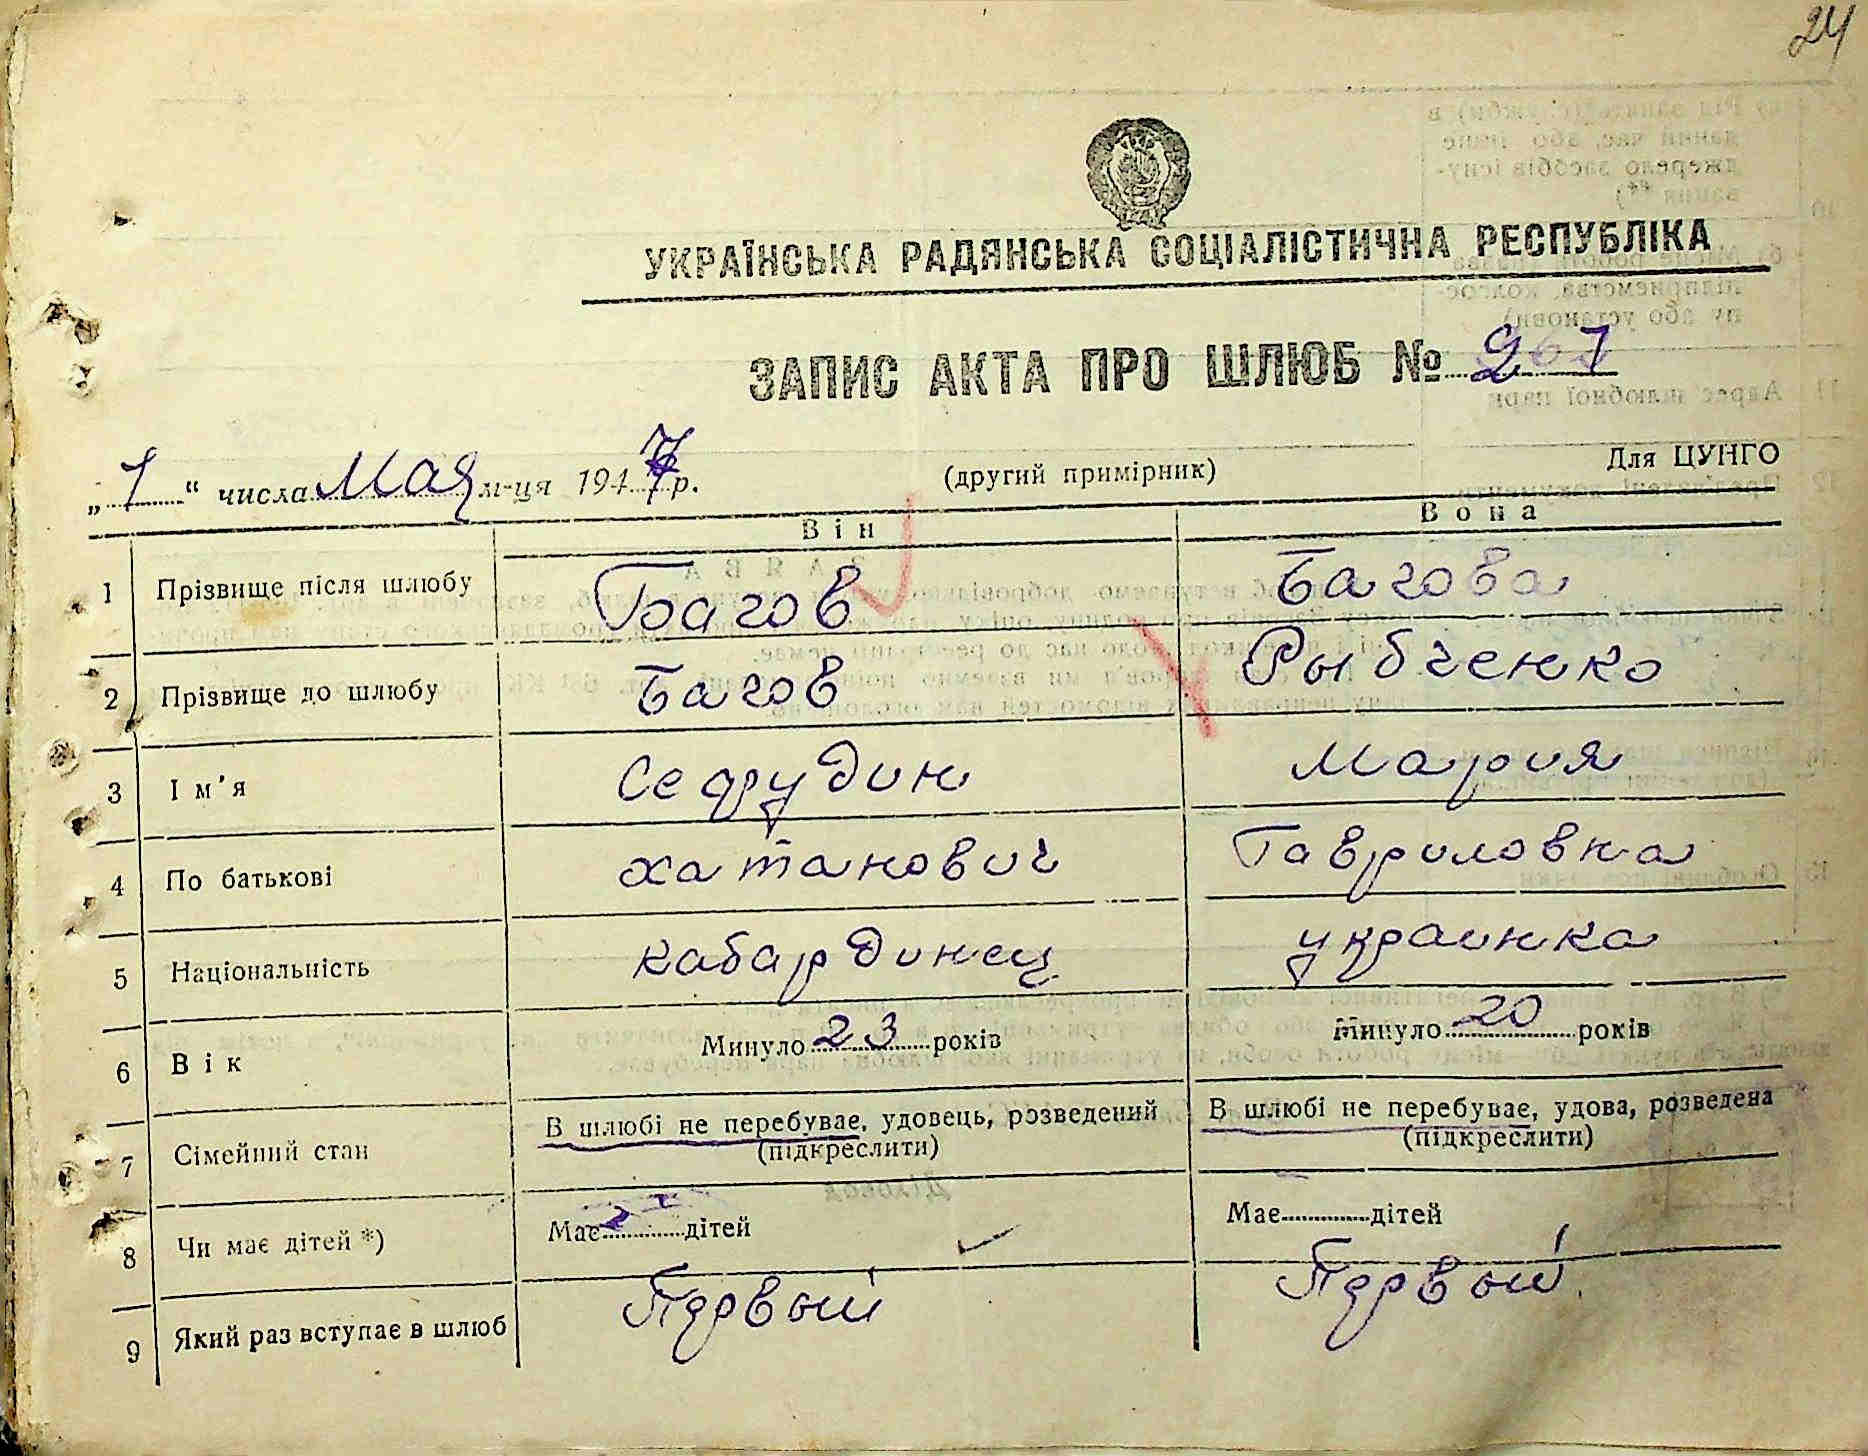 24
УКРАЇНСЬКА РАДЯНСЬКА СОЦІАЛІСТИЧНА РЕСПУБЛІКА
ЗАПИС АКТА ПРО ШЛЮБ №
„ 1 “ числа Мая м-ця 1947 р. (другий примірник) Для ЦУНГО
Він Вона
1 Прізвище після шлюбу Багов Багова
2 Прізвище до шлюбу Багов Рыбченко
3 Ім'я Сефудин Мария
4 По батькові Хатанович Гавриловна
5 Національність кабардинец украинка
6 Вік Минуло 23 років Минуло 20 років
7 Сімейний стан В шлюбі не перебуває, удовець, розведений В шлюбі не перебуває, удова, розведена
(підкреслити) (підкреслити)
8 Чи має дітей *) Має дітей Має дітей
9 Який раз вступає в шлюб Первый Первый